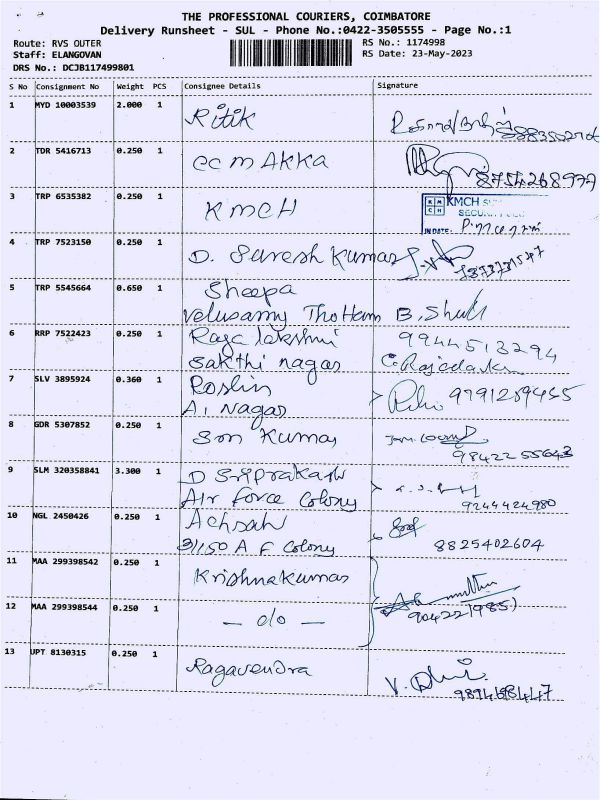 THE PROFESSIONAL COURIERS, COIMBATORE
Delivery Runsheet - SUL - Phone No.:0422-3505555 - Page No.:1
Route: RVS OUTER
RS No.: 1174998
Staff: ELANGOVAN
RS Date: 23-May-2023
DRS No.: DCJB117499801
S No Consignment No Weight PCS Consignee Details Signature
1 MYD 10003539 2.000 1 Ritik
2 TDR 5416713 0.250 1 CC M AKKA 8754268972
3 TRP 6535382 0.250 1 KMCH KMCH
IN DATE:
4 TRP 7523150 0.250 1 D. Suresh Kumar
5 TRP 5545664 0.650 1 Sheepa
Velusamy Thottam B.
6 RRP 7522423 0.250 1 Raja lakshmi 9944513294
Sakthi nagar
7 SLV 3895924 0.360 1 Roslin 9791289465
A1 Nagar
8 GDR 5307852 0.250 1 Kumar
9842255643
9 SLM 320358841 3.300 1 D Sriprakash
Air force Colony 9244424980
10 NGL 2450426 0.250 1 Achsah
31/150 A F Colony 8825402604
11 MAA 299398542 0.250 1 Krishnakumar
12 MAA 299398544 0.250 1 — do —
13 UPT 8130315 0.250 1 Ragavendra V.